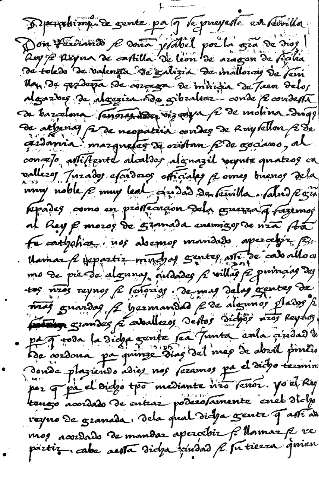 de gente pa q se proveyesse en sevilla
Don Fernando e doña ysabel por la gra de dios
Rey e Reyna de castilla de leon de aragon de seçilia
de toledo de valençia de galizia de mallorcas de sevi
lla de çerdeña de corçega de murçia de Jaen de los
algarbes de algezira de gibraltar conde e condessa
de barçelona señores de vizcaya e de molina duqs
de athenas e de neopatria condes de Ruysellon e de
çerdania marqueses de oristan e de goçiano, al
conçejo assistente alcaldes alguazil veynte quatros ca
valleros Jurados, escuderos ofiçiales e omes buenos de la
muy noble e muy leal çiudad de sevilla salud e gra
sepades como en prosecuçion de la guerra q fazemos
al Rey e moros de granada enemigos de nra sta
fe catholica, nos avemos mandado aperçebir e
llamar e repartir muchas gentes, assi de cavallo co
mo de pie de algunas çiudades e villas e provinçias des
tos nros reynos e señorios, demas de las gentes de
nras guardas, e hermandad e de algunos plados e
grandes e cavalleros destos dichos nros Reynos,
pa q toda la dicha gente sea junta en la çiudad
de cordova pa quinze dias del mes de abril primero
donde plaziendo a dios nos seremos pa el dicho termino
por q pa el dicho tpo mediante nro señor, yo el Rey
tengo acordado de entrar poderosamente en el dicho
reyno de granada, de la qual dicha gente q assi ave
mos acordado de mandar aperçebir e llamar e re
partir, cabe a essa dicha çiudad e su tierra